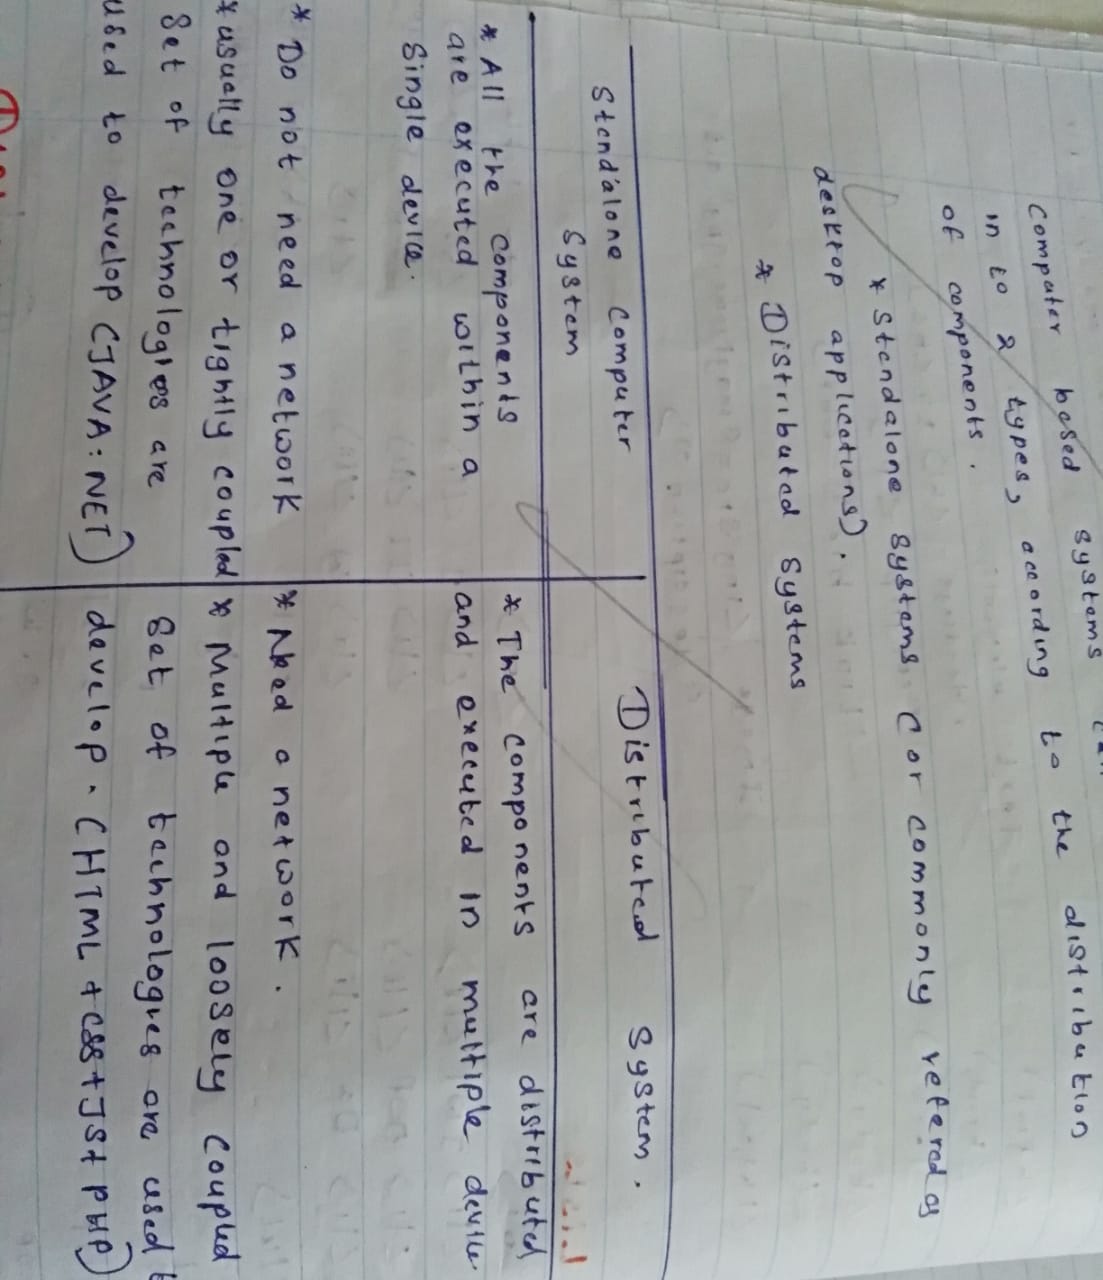 Computer based systems can
in to 2 types, according to the distribution
of components.
* Standalone systems (or commonly refered as
desktop applications).
* Distributed systems
Standalone computer
system
Distributed system.
* All the components
are executed within a
single device.
* The components are distributed
and executed in multiple device.
* Do not need a network
* Need a network.
* usually one or tightly coupled
set of technologies are
used to develop (JAVA:NET)
* Multiple and loosely coupled
set of technologies are used
develop. (HTML + CSS + JS + PHP)